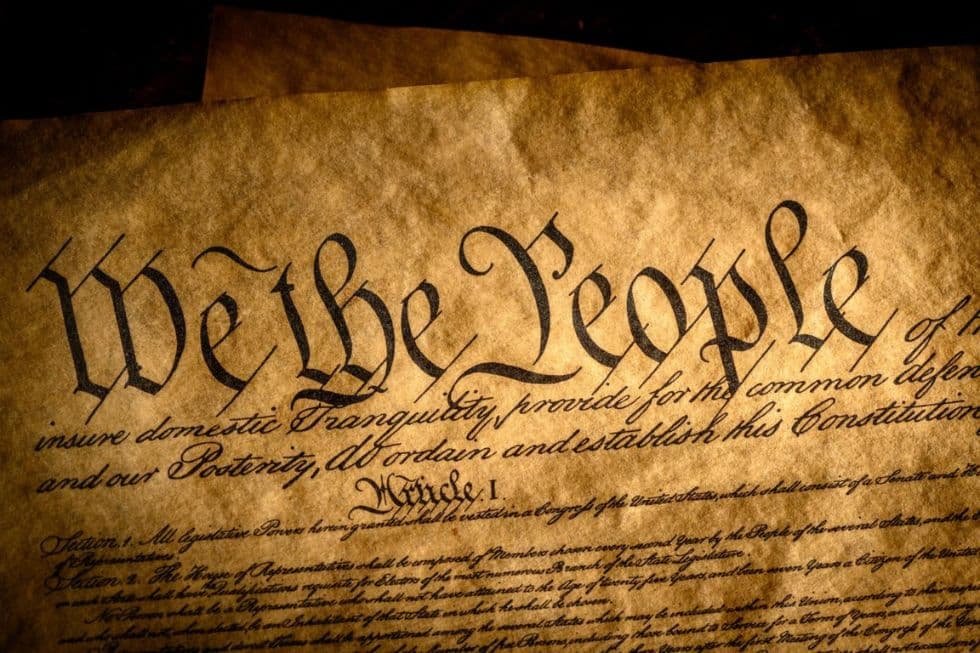 We the People of
insure domestic Tranquility, provide for the common defen
and our Posterity, do ordain and establish this Constitution
Article. I.
Section. 1. All legislative Powers herein granted shall be vested in a Congress of the United States, which shall consist of a Senate and
of Representatives.
Section. 2. The House of Representatives shall be composed of Members chosen every second Year by the People of the several States, and the
in each State shall have Qualifications requisite for Electors of the most numerous Branch of the State Legislature.
No Person shall be a Representative who shall not have attained to the Age of twenty five Years, and been seven Years a Citizen of the United
and who shall not, when elected, be an Inhabitant of that State in which he shall be chosen.
Representatives and direct Taxes shall be apportioned among the several States which may be included within this Union, according to their
Number of free Persons, including those bound to Service for a Term of Years, and excluding
Years after the first Meeting of the Congress of the
shall not exceed one